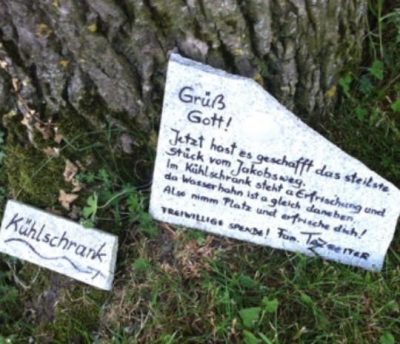 Grüß
Gott!
Jetzt host es geschafft das steilste
Stück vom Jakobsweg.
Im Kühlschrank steht a Erfrischung und
da Wasserhahn is a gleich daneben
Also nimm Platz und erfrische dich!
FREIWILLIGE SPENDE! Fam.
Kühlschrank